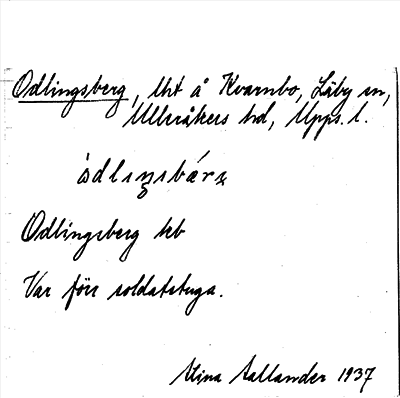 Odlingsberg, lht å Kvarnbo, Läby sn,
Ulleråkers hd, Upps. l.
Odlingsberg heb
Var förr soldatstuga.
Stina Sallander 1937